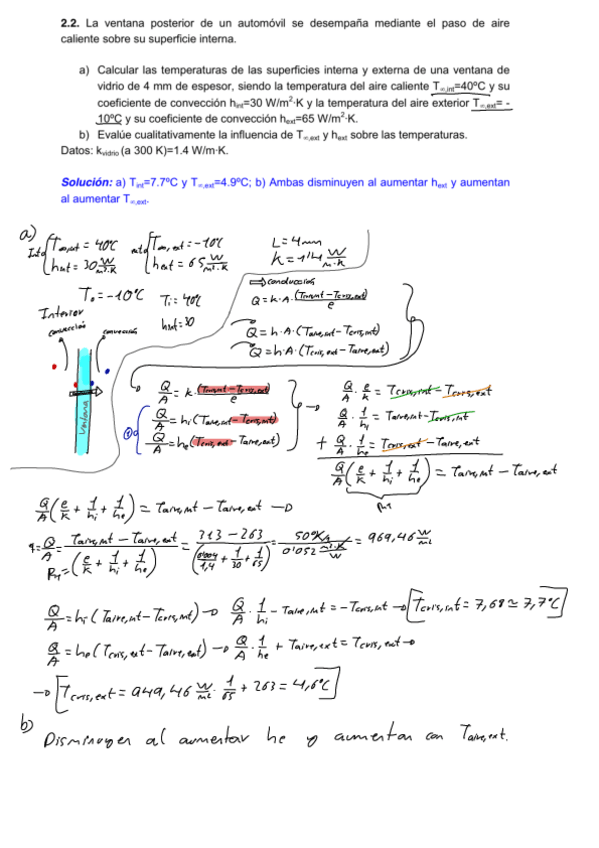 2.2. La ventana posterior de un automóvil se desempaña mediante el paso de aire
caliente sobre su superficie interna.
a) Calcular las temperaturas de las superficies interna y externa de una ventana de
vidrio de 4 mm de espesor, siendo la temperatura del aire caliente T∞,int=40ºC y su
coeficiente de convección hint=30 W/m²·K y la temperatura del aire exterior T∞,ext= -
10ºC y su coeficiente de convección hext=65 W/m²·K.
b) Evalúe cualitativamente la influencia de T∞,ext y hext sobre las temperaturas.
Datos: kvidrio (a 300 K)=1.4 W/m·K.
Solución: a) Tint=7.7ºC y T∞,ext=4.9ºC; b) Ambas disminuyen al aumentar hext y aumentan
al aumentar T∞,ext.
a)
T∞,int = 40ºC T∞,ext = -10ºC L = 4mm
hint = 30 W/m²·K hext = 65 W/m²·K K = 1'4 W/m·K
T₀ = -10ºC Ti = 40ºC
hint = 30
Interior
convección convección
ventana
conducción
Q = K·A·(Tcris,int - Tcris,ext)/e
Q = h·A·(Taire,int - Tcris,int)
Q = h·A·(Tcris,ext - Taire,ext)
Q/A = K·(Tcris,int - Tcris,ext)/e
Q/A = hi(Taire,int - Tcris,int)
Q/A = he(Tcris,ext - Taire,ext)
Q/A · e/K = Tcris,int - Tcris,ext
Q/A · 1/hi = Taire,int - Tcris,int
+ Q/A · 1/he = Tcris,ext - Taire,ext
Q/A (e/K + 1/hi + 1/he) = Taire,int - Taire,ext
RT
Q/A (e/K + 1/hi + 1/he) = Taire,int - Taire,ext →
q = Q/A = (Taire,int - Taire,ext)/(e/K + 1/hi + 1/he) = (313 - 263)/(0'004/1,4 + 1/30 + 1/65) = 50ºK/(0'052 m²·K/W) = 969,46 W/m²
RT
Q/A = hi(Taire,int - Tcris,int) → Q/A · 1/hi - Taire,int = -Tcris,int → Tcris,int = 7,68 ≃ 7,7ºC
Q/A = he(Tcris,ext - Taire,ext) → Q/A · 1/he + Taire,ext = Tcris,ext →
→ Tcris,ext = 949,46 W/m² · 1/65 + 263 = 4,6ºC
b)
Disminuyen al aumentar he y aumentan con Taire,ext.